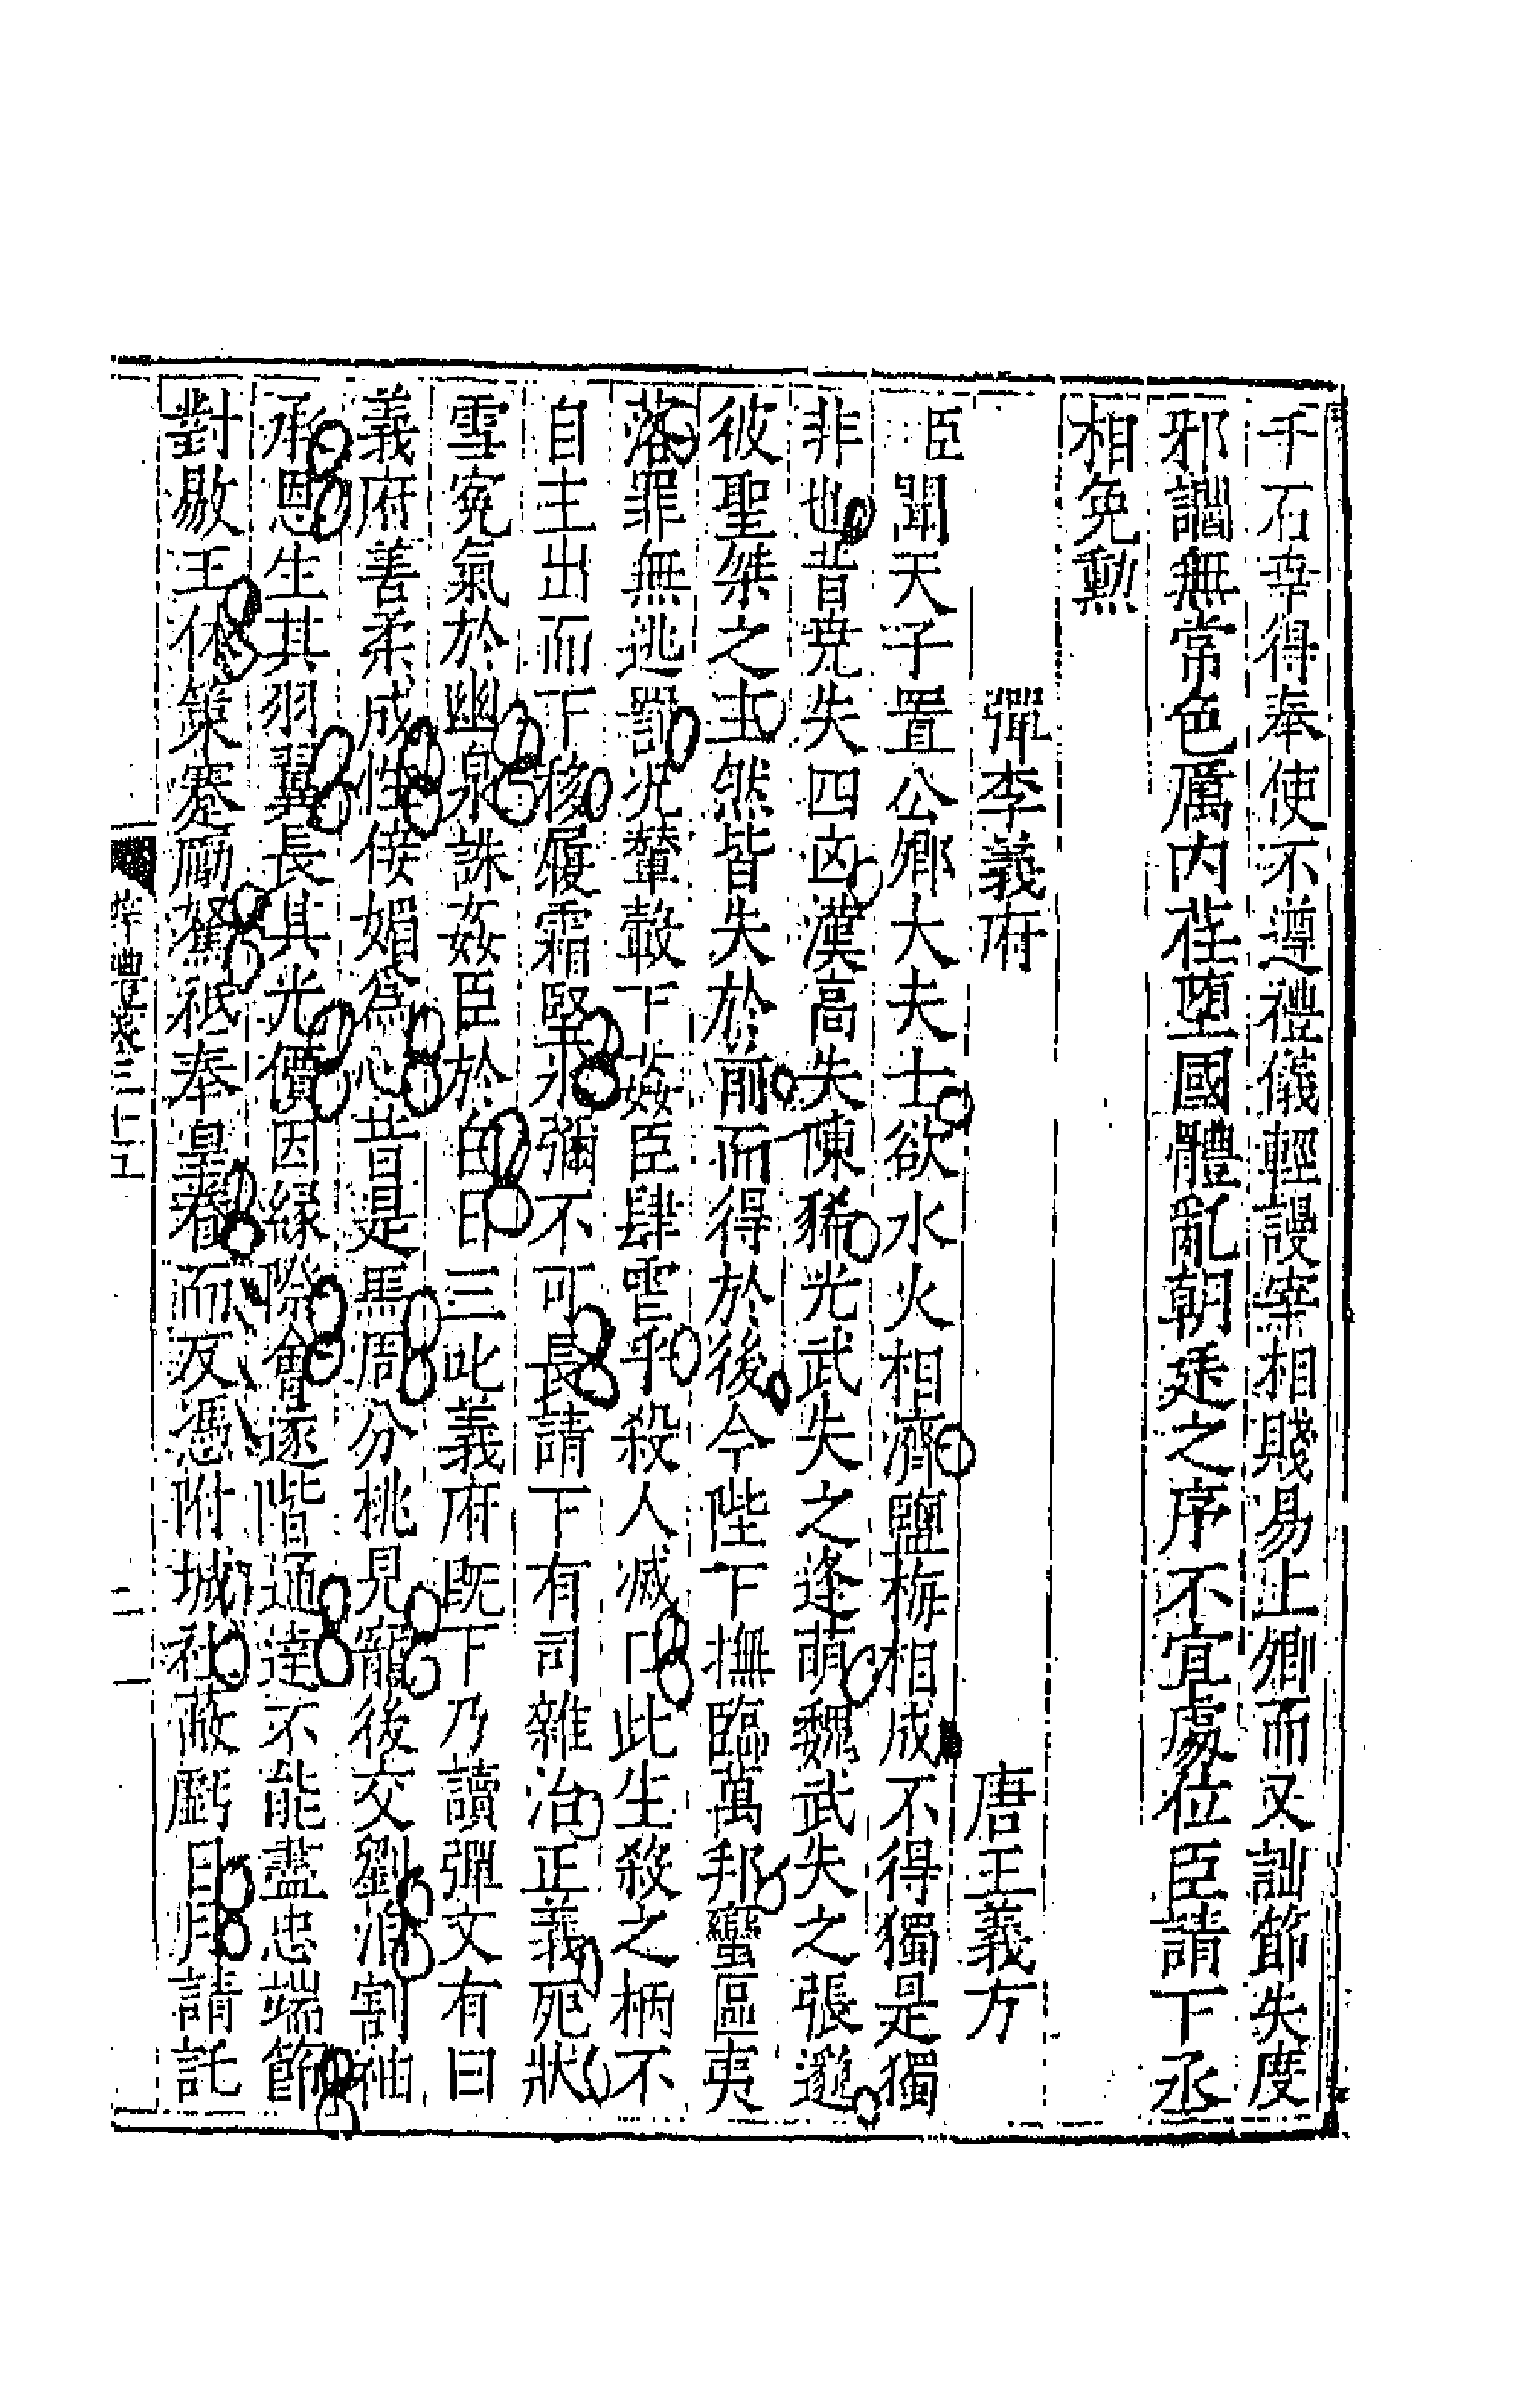 千石幸得奉使不遵禮儀輕謾宰相賤易上卿而又詘節失度
邪諂無常色厲內荏墮國體亂朝廷之序不宜處位臣請下丞
相免勲
彈李義府
唐王義方
臣聞天子置公卿大夫士欲水火相濟鹽梅相成不得獨是獨
非也昔堯失四凶漢高失陳豨光武失之逢萌魏武失之張邈
彼聖桀之主然皆失於前而得於後今陛下撫臨萬邦蠻區夷
落罪無逃罰况輦轂下姦臣肆虐乎殺人滅口此生殺之柄不
自主出而下移履霜堅氷彌不可長請下有司雜治正義死狀
雪寃氣於幽泉誅姦臣於白日三叱義府既下乃讀彈文有曰
義府善柔成性佞媚爲心昔是馬周分桃見寵後交劉洎割袖
承恩生其羽翼長其光價因緣際會遂階通達不能盡忠端節
對敭王休策蹇勵駑祇奉皇眷而反憑附城社蔽虧日月請託
卷三十五
二